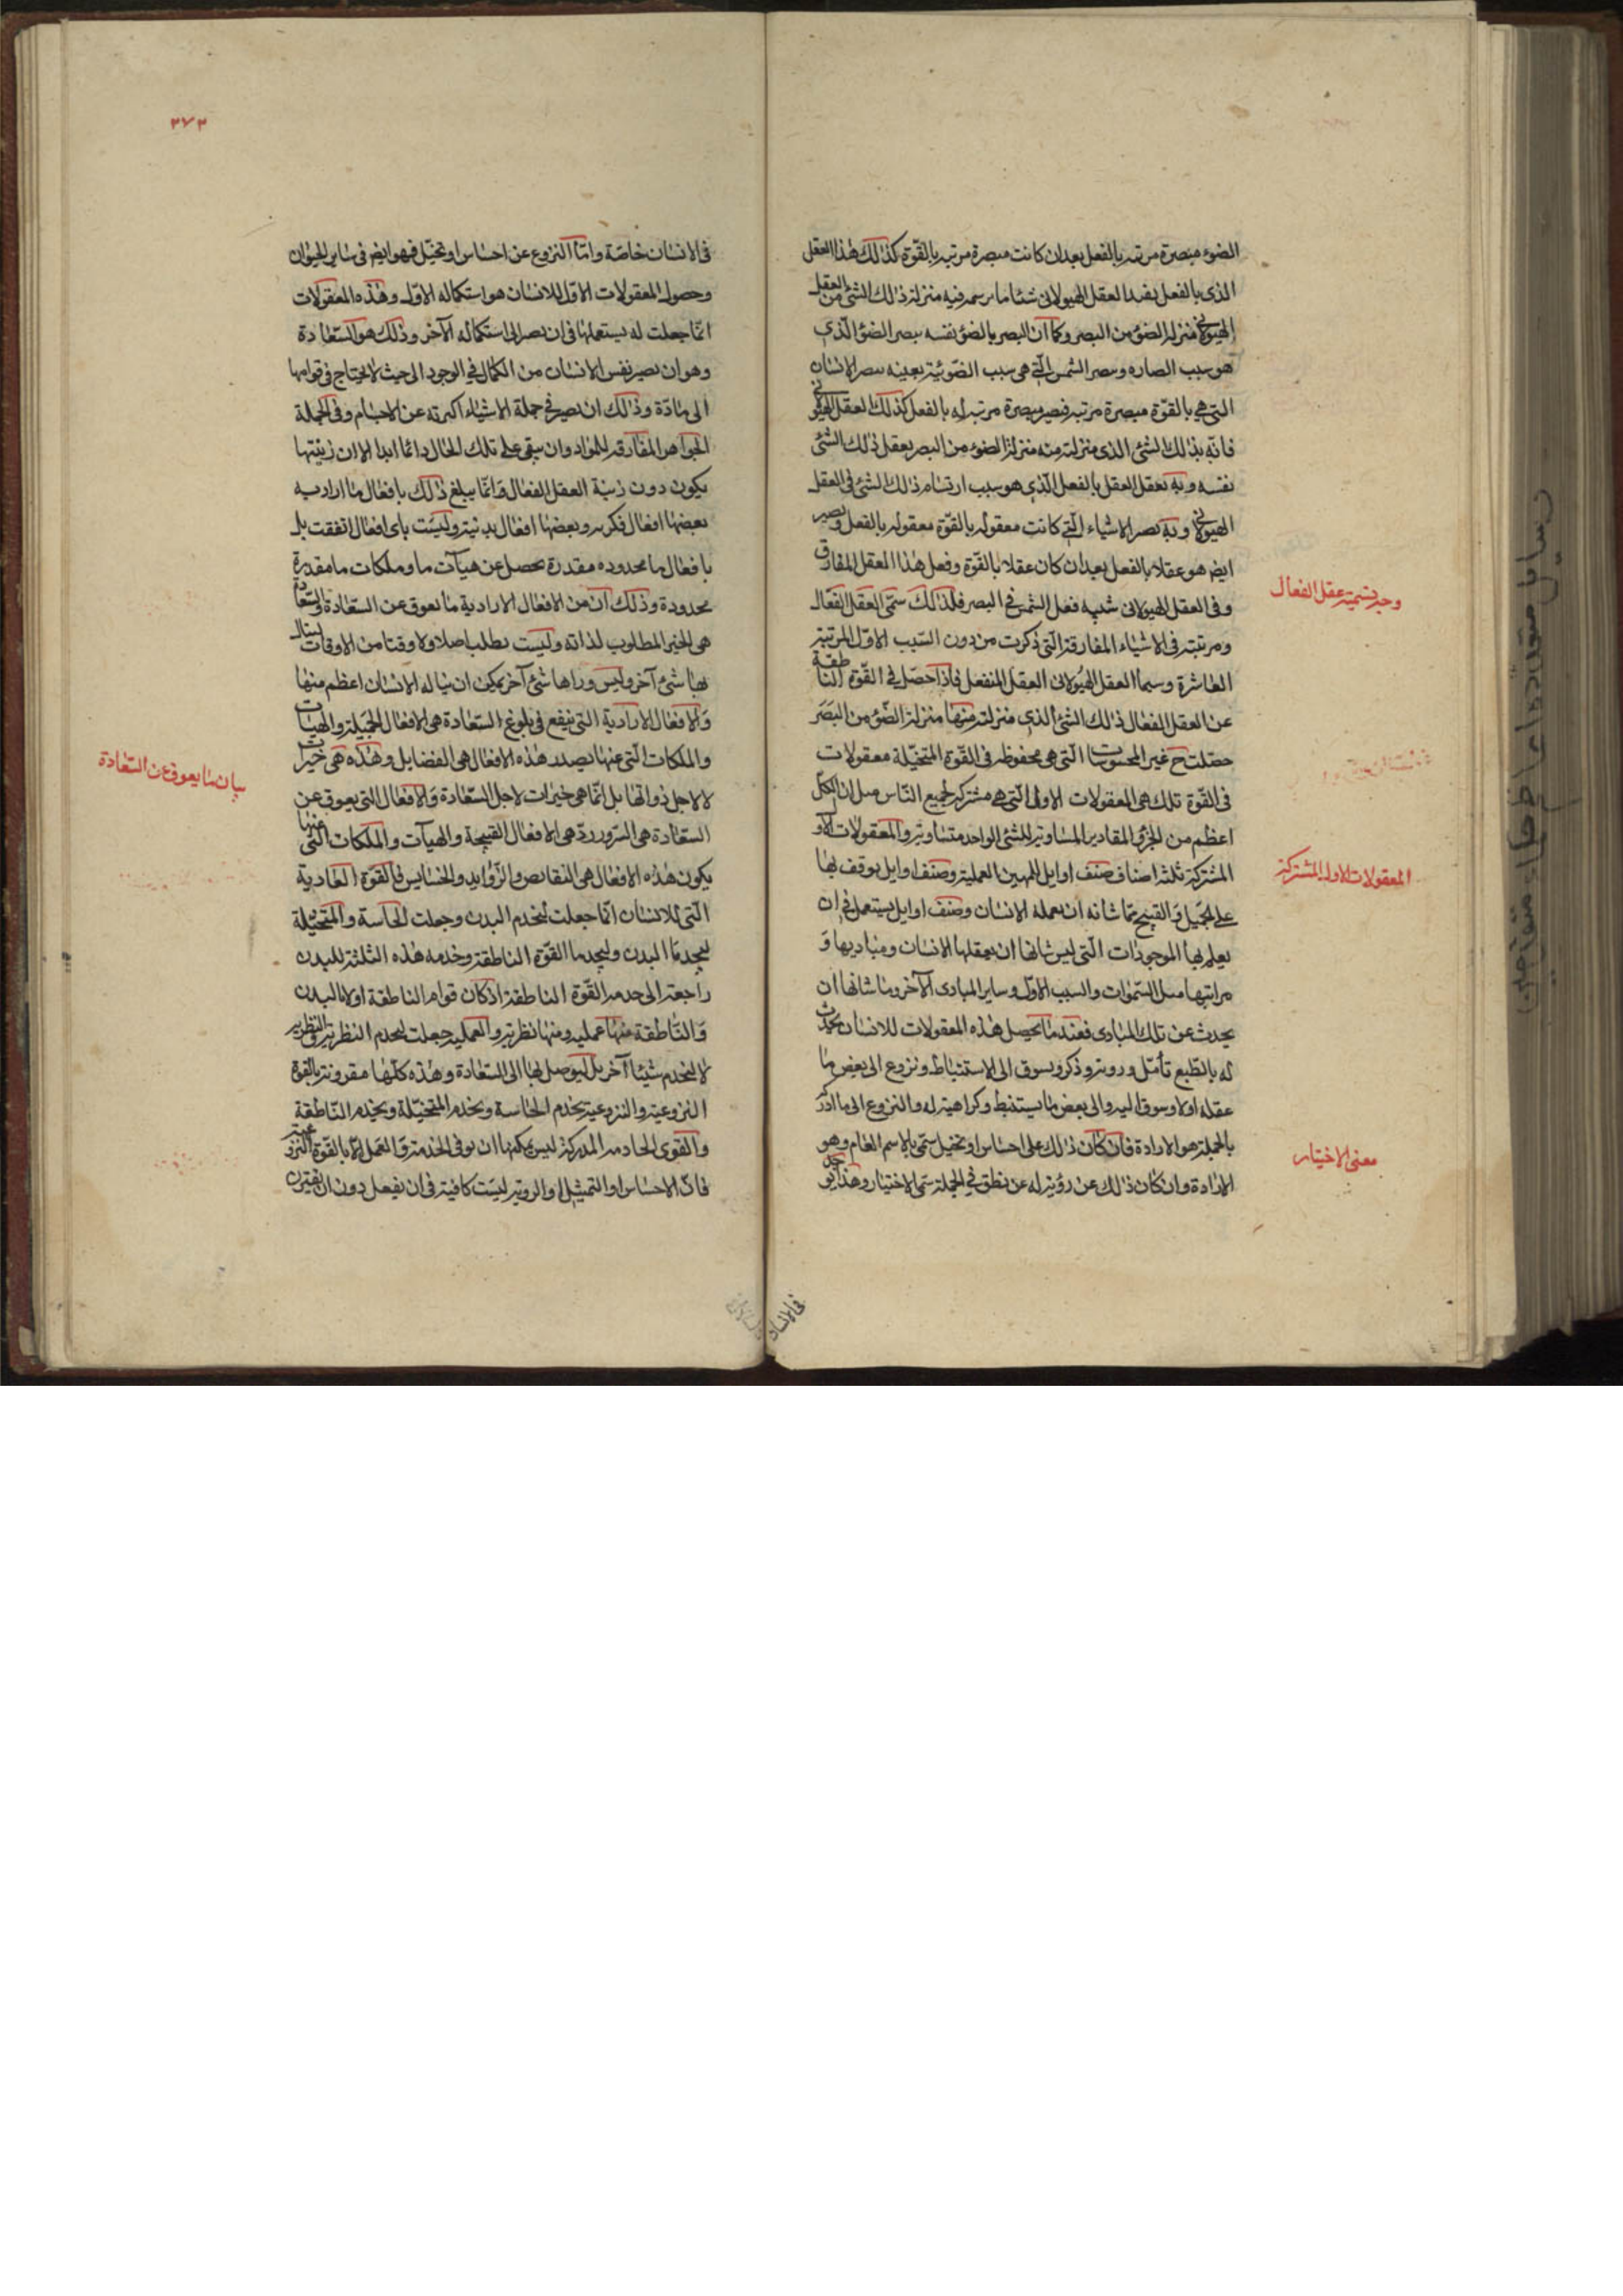 الضوء مبصرة مرئيه بالفعل بعد ان كانت مبصرة مرئيه بالقوّة كذلك هذا العقل
الذى بالفعل يفيد العقل الهيولانى شيئا ما يرسمه فيه منزلة ذلك الشئ من العقل
الهيولانى منزلة الضوء من البصر وكما ان البصر بالضؤ نفسه يبصر الضؤ الّذى
هو سبب ابصاره ويبصر الشمس الّتى هى سبب الضّوء به بعينه يبصر الاشياء
التى هى بالقوّة مبصرة مرئيه فيصير مبصرة مرئية بالفعل كذلك العقل الهيولانى
فانّه بذلك الشئ الذى منزلته منه منزلة الضوء من البصر يعقل ذلك الشئ
نفسه وبه يعقل العقل بالفعل الّذى هو سبب ارتسام ذلك الشئ فى العقل
الهيولانى وبه يصير الاشياء الّتى كانت معقوله بالقوّة معقوله بالفعل ويصير
ايضا هو عقلا بالفعل بعد ان كان عقلا بالقوّة وفعل هذا العقل المفارق
وفى العقل الهيولانى شبيه فعل الشمس فى البصر فلذلك سمّى العقل الفعّال
وجه تسمية عقل الفعال
ومرتبته فى الاشياء المفارقة الّتى ذكرت من دون السّبب الاوّل المرتبة
العاشرة وسيما العقل الهيولانى العقل المنفعل فاذا حصّل فى القّوة الناطقة
عن العقل الفعال ذلك الشئ الذى منزلته منها منزلة الضّؤ من البَصَر
حصّلت ح غير المحسوسات الّتى هى محفوظه فى القّوة المتخيّلة معقولات
فى القّوة تلك هى المعقولات الاولى الّتى هى مشتركه لجميع النّاس مثل ان الكلّ
اعظم من الجزؤ المقادير المساويه للشئ الواحد متساويه والمعقولات الاو
المشتركة ثلثه اصناف صنف اوايل للمهن العمليه وصنف اوايل يوقف بها
المعقولات الاولى المشتركة
على الجميل و القبيح ممّا شانه ان يعمله الانسان وصنف اوايل يستعمل فى ان
يعلم بها الموجودات الّتى ليس شانها ان يعقلها الانسان ومباديها و
مراتبها مثل السّموات والسبب الاوّل وساير المبادى الآخر وما شانها ان
يحدث عن تلك المبادى فعند ما يحصل هذه المعقولات للانسان يحدث
له بالطّبع تأمّل ورويه وذكر وتشوق الى الاستنباط ونزوع الى بعض ما
عقله اولا وشوق اليه والى بعض ما يستنبط وكراهية له والنزوع الى ما ادركه
بالجملة هو الارادة فان كان ذلك على احساس او تخيل سمّى بالاسم العام وهو
معنى الاختيار
الارادة وان كان ذلك عن رؤية له عن نطق فى الجملة سمى الاختيار وهذا يوجد
فى الانسان
٣٧٣
فى الانسان خاصّة وامّا النزوع عن احساس او تخيّل فهو ايضا فى ساير الحيوان
وحصول المعقولات الاوّل للانسان هو استكماله الاوّل وهذه المعقولات
انّما جعلت له يستعملها فى ان يصير الى استكماله الآخر وذلك هو السّعادة
وهو ان يصير نفس الانسان من الكمال فى الوجود الى حيث لا يحتاج فى قوامها
الى مادّة وذلك ان يصير فى جملة الاشياء البرئه عن الاجسام وفى الجملة
الجواهر المفارقه للمواد وان يبقى على تلك الحال دائما ابدا الا ان رتبتها
يكون دون رتبة العقل الفعال وانّما يبلغ ذلك بافعال ما اراديه
بعضها افعال فكريه وبعضها افعال بدنيه وليست باى افعال اتفقت بل
بافعال ما محدوده مقدرة يحصل عن هيآت ما وملكات ما مقدرة
محدودة وذلك ان من الافعال الارادية ما يعوق عن السعادة والسّعادة
هى الخير المطلوب لذاته وليست يطلب اصلا ولا وقتا من الاوقات لينال
بها شئ آخر وليس وراها شئ آخر يمكن ان يناله الانسان اعظم منها
والافعال الارادية التى ينفع فى بلوغ السّعادة هى الافعال الجميلة والهيآت
والملكات الّتى عنها يصدر هذه الافعال هى الفضايل وهذه هى خيرات
بيان ما يعوق عن السعادة
لا لاجل ذواتها بل انّما هى خيرات لاجل السّعادة والافعال التى يعوق عن
السّعادة هى الشرور هى الافعال القبيحة والهيآت والملكات الّتى عنها
يكون هذه الافعال هى النقايص والرّذايل والخسايس فالقوّة الغاذية
الّتى للانسان انّما جعلت ليخدم البدن وجعلت الحاسة والمتخيّلة
ليخدما البدن وليخدما القوّة الناطقة وخدمه هذه الثلثة للبدن
راجعة الى خدمه القّوة الناطقة اذ كان قوام الناطقة اولا بالبدن
والنّاطقة منها عمليه ومنها نظريه والعمليه جعلت ليخدم النظرية والنظريه
لا ليخدم شيئا آخر بل ليوصل بها الى السّعادة وهذه كلّها مقرونة بالقوّة
النزوعية والنزوعية يخدم الحاسة ويخدم المتخيّلة ويخدم النّاطقة
والقوى الخادمه المدركة ليس يمكنها ان يوفى الخدمة والعمل الّا بالقّوة النزوعية
فانّ الاحساس او التمثيل او الروية ليست كافية فى ان يفعل دون ان يقترن